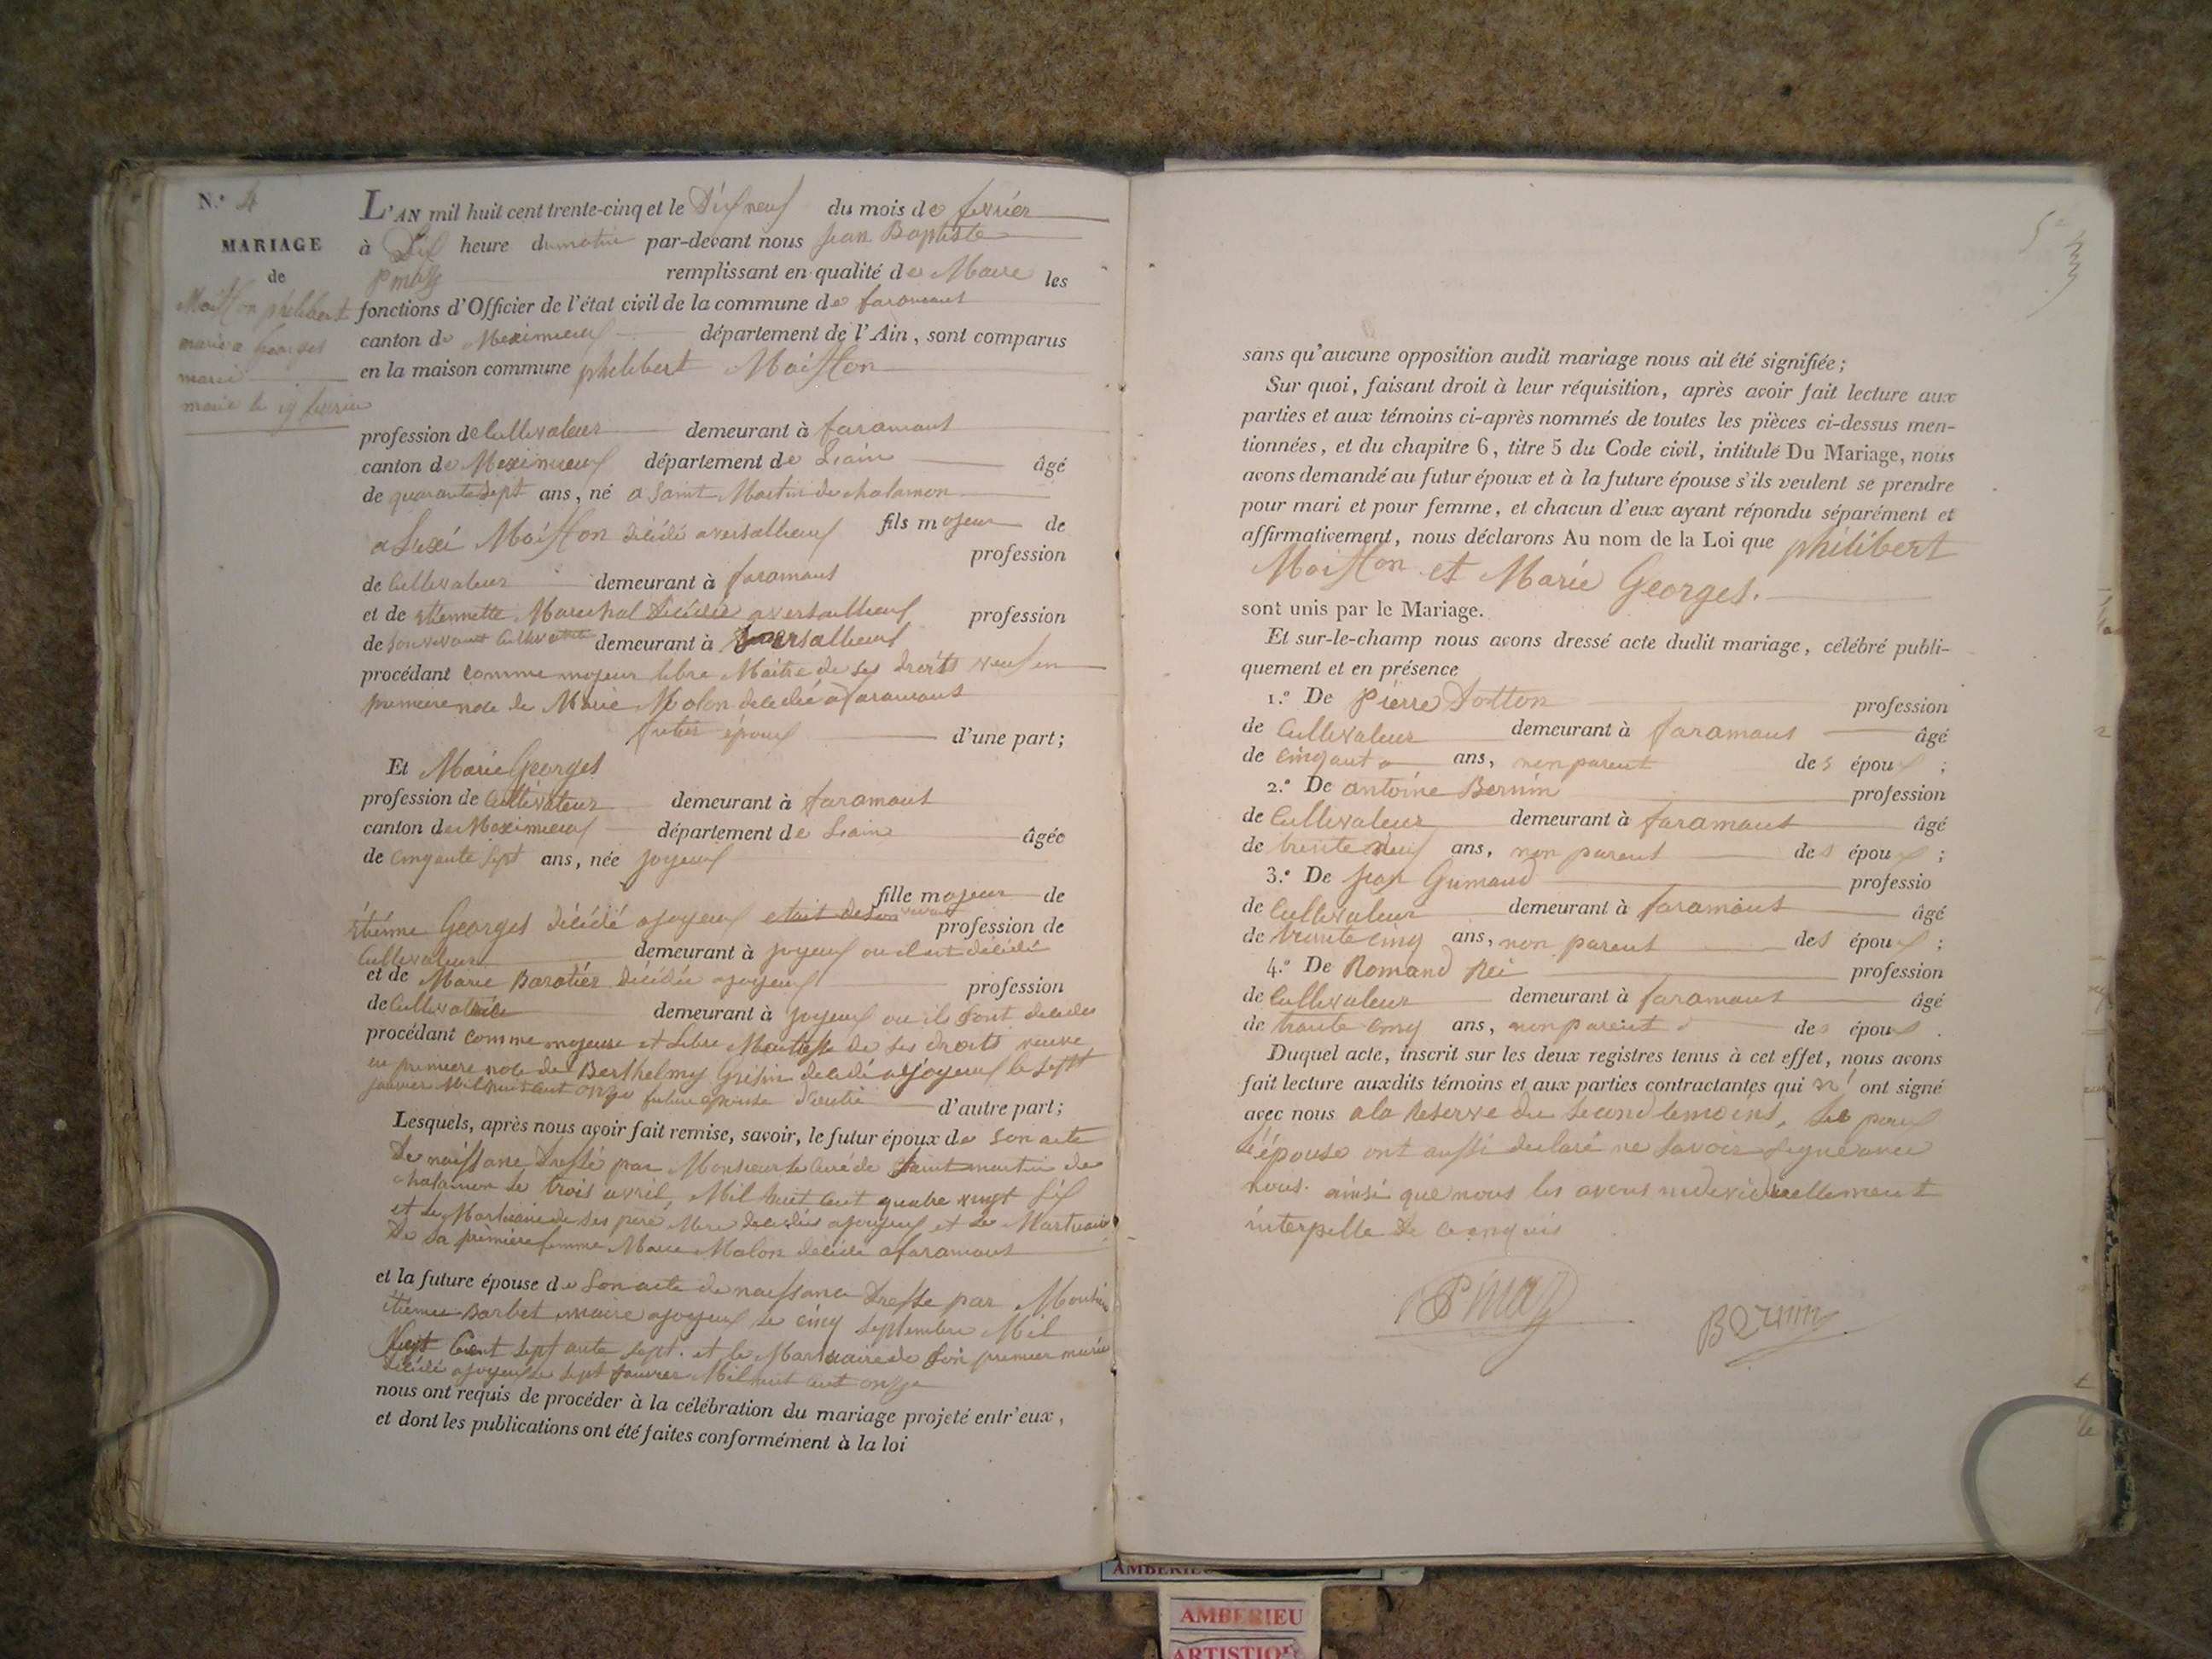 N.° 4
MARIAGE
de
Moisson philibert
marie a Georges
marie
marié le 19 fevrier
L'AN mil huit cent trente-cinq et le Dix neuf du mois de fevrier
à Dix heure du matin par-devant nous Jean Baptiste
remplissant en qualité de Maire les
fonctions d'Officier de l'état civil de la commune de faramant
canton de Meximieux département de l'Ain, sont comparus
en la maison commune philibert Moisson
profession de Cultivateur demeurant à faramant
canton de Meximieux département de Lain âgé
de quarante sept ans, né a Saint Martin de chalamon
Moisson décédé a versallieux fils majeur de
profession
de Cultivateur demeurant à faramant
et de Etiennette Marechal décédée a versailleux profession
de Son vivant Cultivatrice demeurant à versallieux
procédant comme majeur libre Maitre de ses droits veuf en
premiere noce de Marie Molon décédée a faramant
futur époux d'une part;
Et Marie Georges
profession de Cultivateur demeurant à faramant
canton de Meximieux département de Lain âgée
de cinqante sept ans, née joyeux
fille majeur de
Etienne Georges décédé a joyeux etait de son vivant profession de
Cultivateur demeurant à joyeux ou il est décédé
et de Marie Baratier décédée a joyeux profession
de Cultivatrice demeurant à joyeux ou ils sont décédés
procédant comme majeure et Libre Maitresse de ses droits veuve
en premiere noce de Berthelmy Grisin décédé a joyeux le sept
janvier Mil huit cent onze future épouse d'autre part;
Lesquels, après nous avoir fait remise, savoir, le futur époux de Son acte
De naissance Dressé par Monsieur le Curé de Saint martin de
chalamon le trois avril, Mil huit cent quatre vingt Six
et le Martuaire de ses pere Mere décédés a joyeux et le Martuaire
De sa première femme Marie Molon décédé a faramant
et la future épouse de Son acte de naissance Dresse par Monsieur
étienne Barbet maire a joyeux le cinq Septembre Mil
Cent Sept ante Sept. et le Martuaire de Son premier marie
décédé a joyeux le sept Janvier Mil huit cent onze
nous ont requis de procéder à la célébration du mariage projeté entr'eux,
et dont les publications ont été faites conformément à la loi
sans qu'aucune opposition audit mariage nous ait été signifiée;
Sur quoi, faisant droit à leur réquisition, après avoir fait lecture aux
parties et aux témoins ci-après nommés de toutes les pièces ci-dessus men-
tionnées, et du chapitre 6, titre 5 du Code civil, intitulé Du Mariage, nous
avons demandé au futur époux et à la future épouse s'ils veulent se prendre
pour mari et pour femme, et chacun d'eux ayant répondu séparément et
affirmativement, nous déclarons Au nom de la Loi que philibert
Moisson et Marie Georges.
sont unis par le Mariage.
Et sur-le-champ nous avons dressé acte dudit mariage, célébré publi-
quement et en présence
1.° De Pierre Dotton profession
de Cultivateur demeurant à faramant âgé
de cinqante ans, non parent des époux ;
2.° De antoine Bernin profession
de Cultivateur demeurant à faramant âgé
de trente neuf ans, non parent des époux ;
3.° De Jean Gumand professio
de Cultivateur demeurant à faramant âgé
de trante cinq ans, non parent des époux ;
4.° De Romand Rei profession
de Cultivateur demeurant à faramant âgé
de trante cinq ans, non parent des époux .
Duquel acte, inscrit sur les deux registres tenus à cet effet, nous avons
fait lecture auxdits témoins et aux parties contractantes qui n' ont signé
avec nous a la Reserve du second temoins,
L'épouse ont aussi declaré ne savoir signé avec
nous. ainsi que nous les avons individuellement
interpelle De ce enquis
Bernin
AMBERIEU
AMBERIEU
ARTISTIQUE